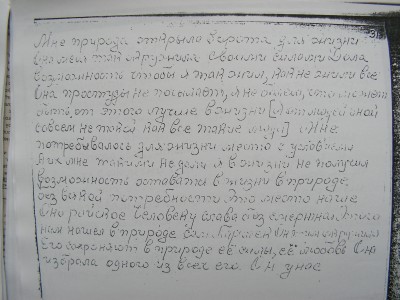 31
Мне природа открыла ворота для жизни
Она меня так окружила своими силами Дала
возможность чтобы я так жил, как не жили все
Она простуды не посылает, я не болею, что может
быть от этого лучше в жизни [А от людей оной
совсем не такой как все такие люди] Мне
потребовалось для жизни место с условиями
Я их мне такими не дали я в жизни не получил
возможность остаться в жизни в природе,
без всякой потребности Это место наше
Оно райское Человеку слава бессмертная. Это
нам нашел в природе сам Паршек Она окружила
Его сохраняют в природе её силы, её любовь Она
избрала одного из всех его. Он у нас